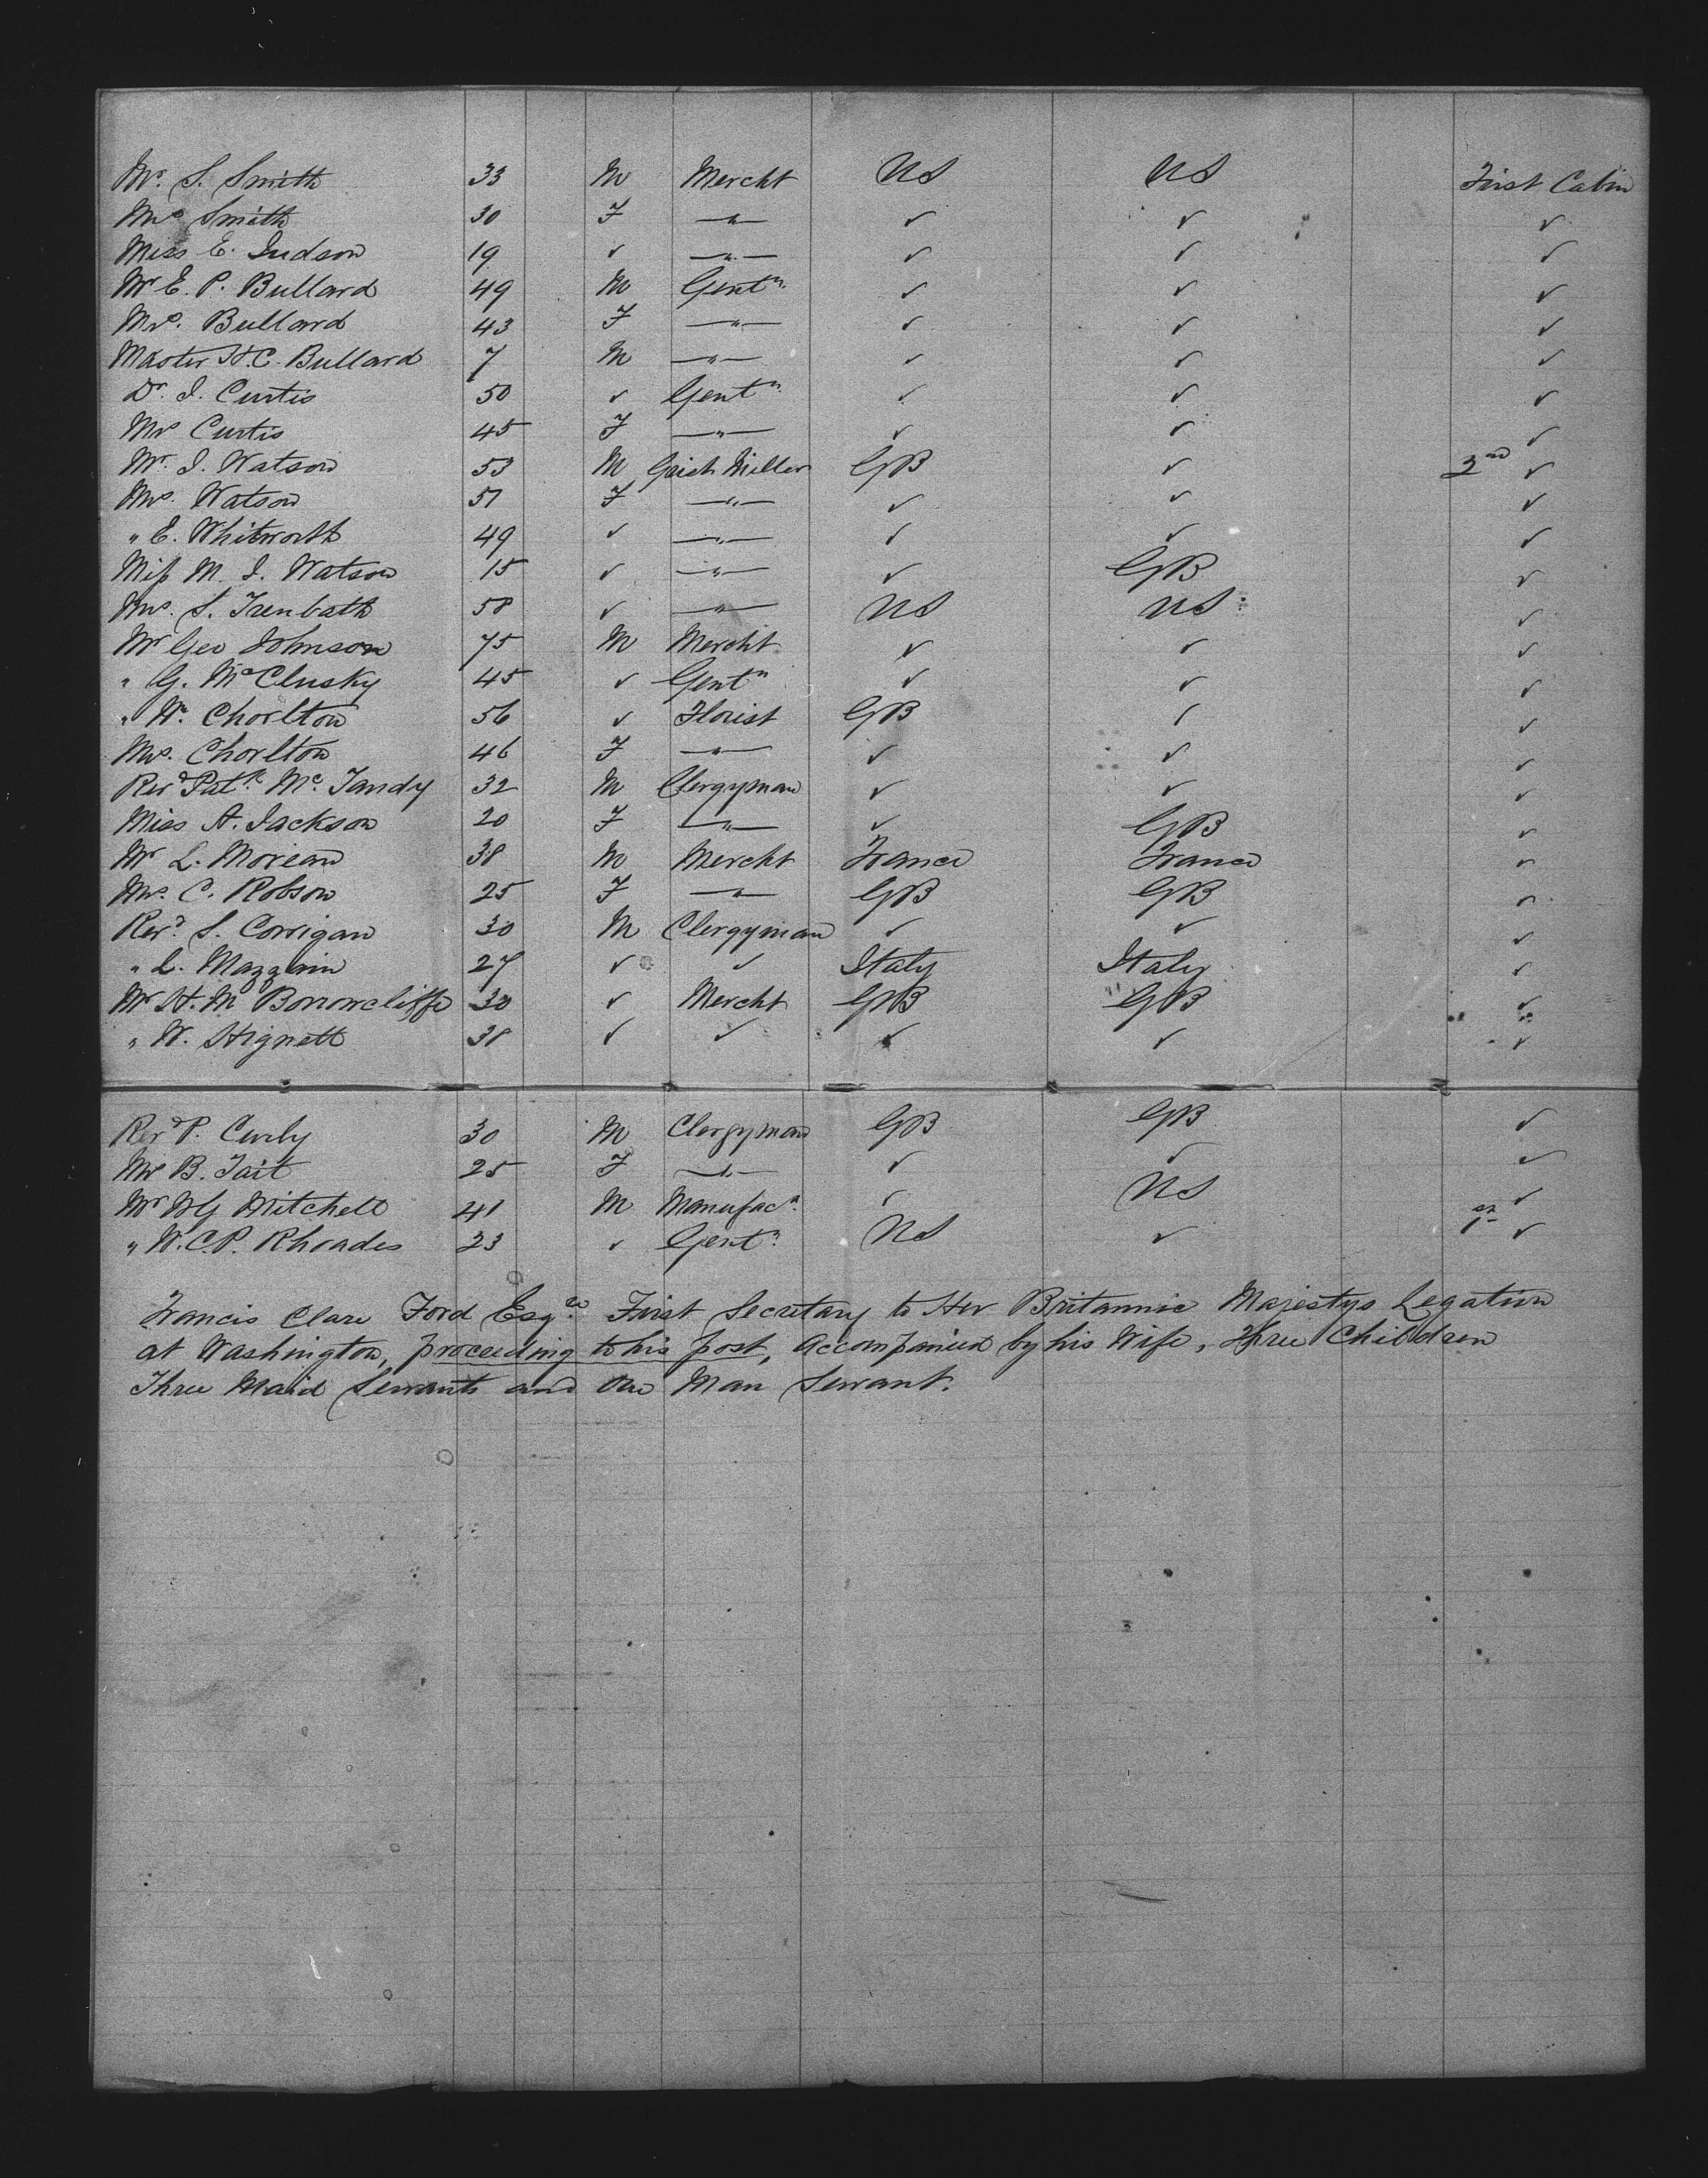 Mr. S. Smith 33 M Mercht US US First Cabin
Mrs Smith 30 F —"— ✓ ✓ ✓
Miss E. Judson 19 ✓ —"— ✓ ✓ ✓
Mr E. P. Bullard 49 M Gentn ✓ ✓ ✓
Mrs. Bullard 43 F —"— ✓ ✓ ✓
Master H.C. Bullard 7 M —"— ✓ ✓ ✓
Dr. J. Curtis 50 ✓ Gentn ✓ ✓ ✓
Mrs Curtis 45 F —"— ✓ ✓ ✓
Mr. J. Watson 53 M Grist Miller GB ✓ 2nd ✓
Mrs. Watson 51 F —"— ✓ ✓ ✓
" E. Whitworth 49 ✓ —"— ✓ ✓ ✓
Miss M. J. Watson 15 ✓ —"— ✓ GB ✓
Mrs. S. Trenbath 58 ✓ —"— US US ✓
Mr Geo Johnson 75 M Mercht ✓ ✓ ✓
" G. McClusky 45 ✓ Gentn ✓ ✓ ✓
" Wm. Chorlton 56 ✓ Florist GB ✓ ✓
Mrs. Chorlton 46 F —"— ✓ ✓ ✓
Revd Patk. Mc. Tandy 32 M Clergyman ✓ ✓ ✓
Miss A. Jackson 20 F —"— ✓ GB ✓
Mr L. Moreau 38 M Mercht France France ✓
Mrs. C. Robson 25 F —"— GB GB ✓
Revd. S. Corrigan 30 M Clergyman ✓ ✓ ✓
" L. 27 ✓ ✓ Italy Italy ✓
Mr H. M Borrowcliffe 30 ✓ Mercht GB GB ✓
" W. Hignett 38 ✓ ✓ ✓ ✓ ✓
Revd P. Curly 30 M Clergyman GB GB ✓
Mrs B. Tait 25 F —"— ✓ ✓ ✓
Mr WG Mitchell 41 M Manufacr. ✓ US ✓
" W.C.P. Rhoades 23 ✓ Gentn. US ✓ 1st ✓
Francis Clare Ford Esqre First Secretary to Her Britannic Majestys Legation
at Washington, proceeding to his post, accompanied by his Wife, Three Children
Three Maid Servants and one Man Servant.